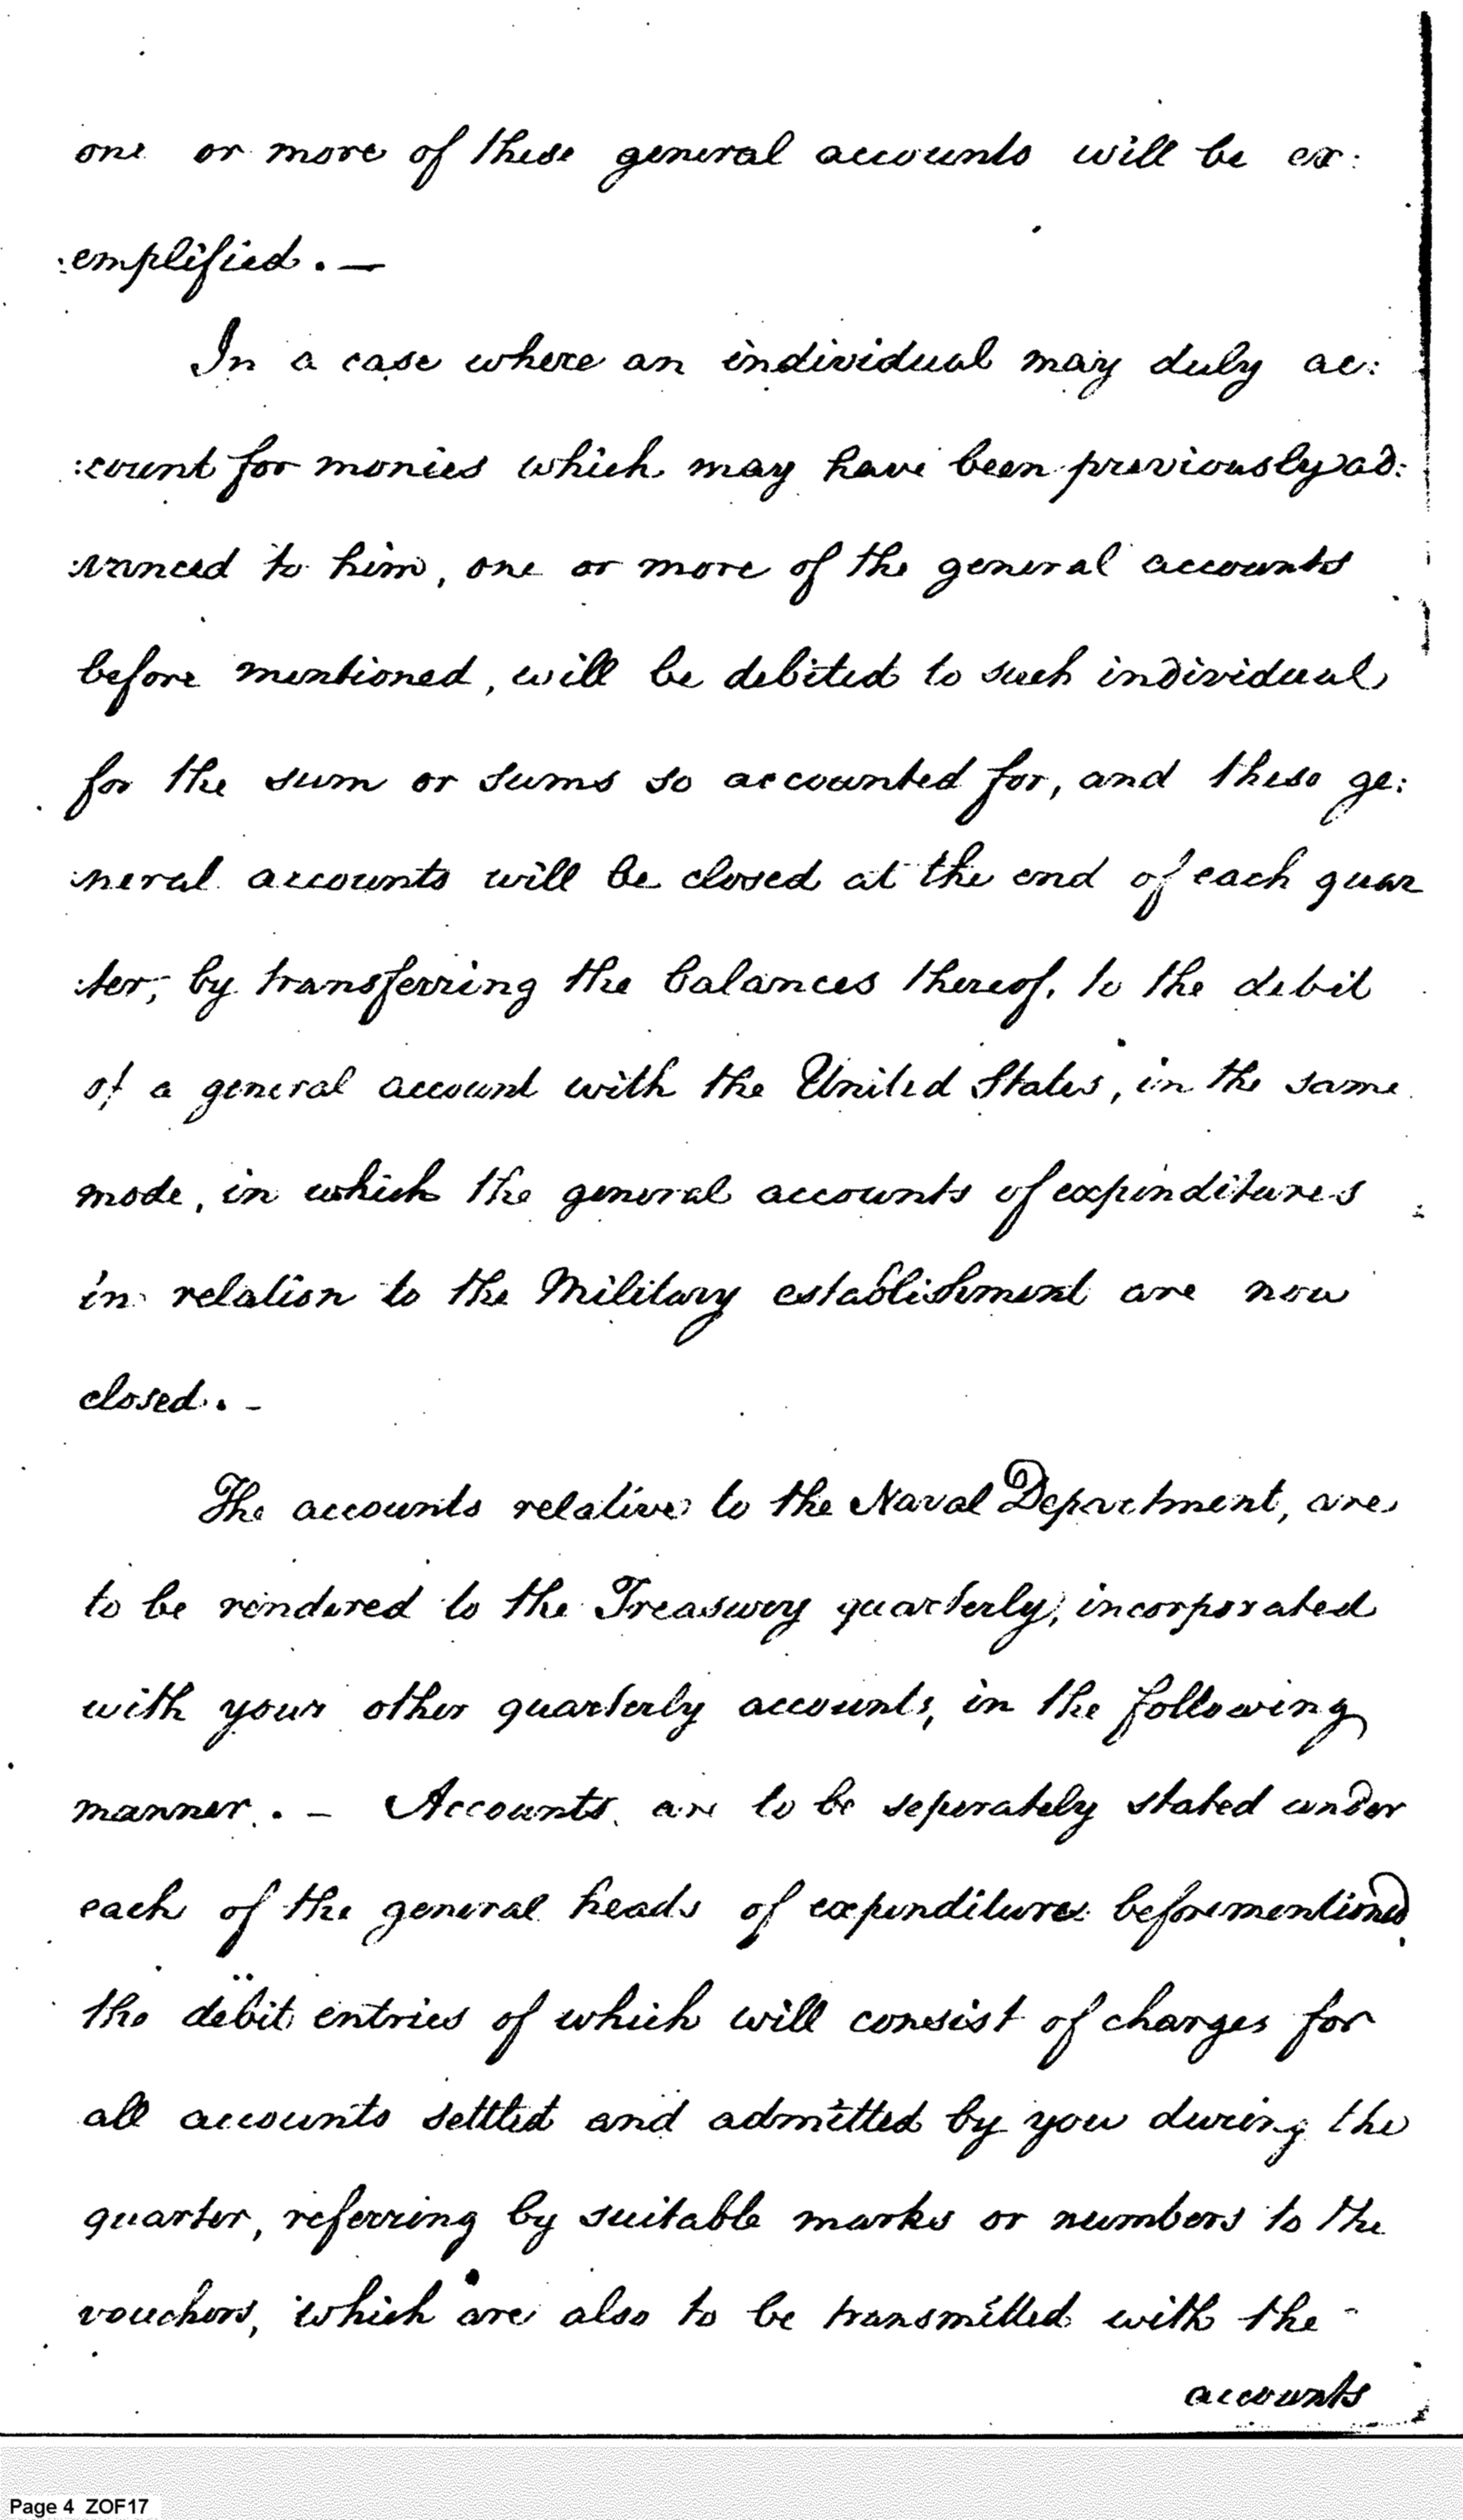 one or more of these general accounts will be ex:
:emplified. —
In a case where an individual may duly ac:
:count for monies which may have been previously ad:
:vanced to him, one or more of the general accounts
before mentioned, will be debited to such individual
for the sum or sums so accounted for, and these ge:
:neral accounts will be closed at the end of each quar
:ter, by transferring the balances thereof, to the debit
of a general account with the United States, in the same
mode, in which the general accounts of expenditures
in relation to the Military establishment are now
closed. -
The accounts relative to the Naval Department, are
to be rendered to the Treasury quarterly, incorporated
with your other quarterly accounts, in the following
manner. - Accounts are to be seperately stated under
each of the general heads of expenditures beforementioned,
the debit entries of which will consist of charges for
all accounts settled and admitted by you during the
quarter, referring by suitable marks or numbers to the
vouchers, which are also to be transmitted with the -
accounts
Page 4 ZOF17